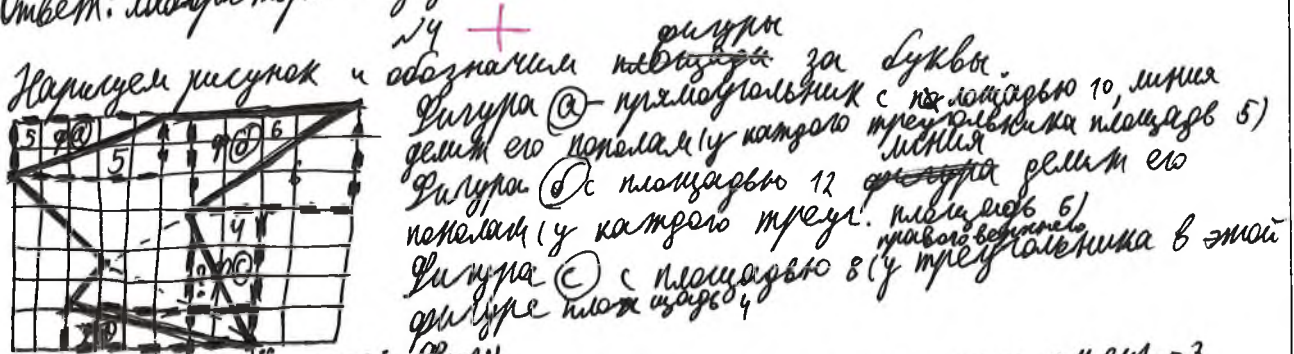 Ответ:
№4
Нарисуем рисунок и обозначим фигуры за буквы.
Фигура а - прямоугольник с площадью 10, линия
делит его пополам (у каждого треугольника площадь 5)
Фигура б с площадью 12 линия делит его
пополам (у каждого треуг. площадь 6)
Фигура с с площадью 8 (у правого верхнего треугольника в этой
фигуре площадь 4
5 ф а 5
ф б 6
4
? ф с